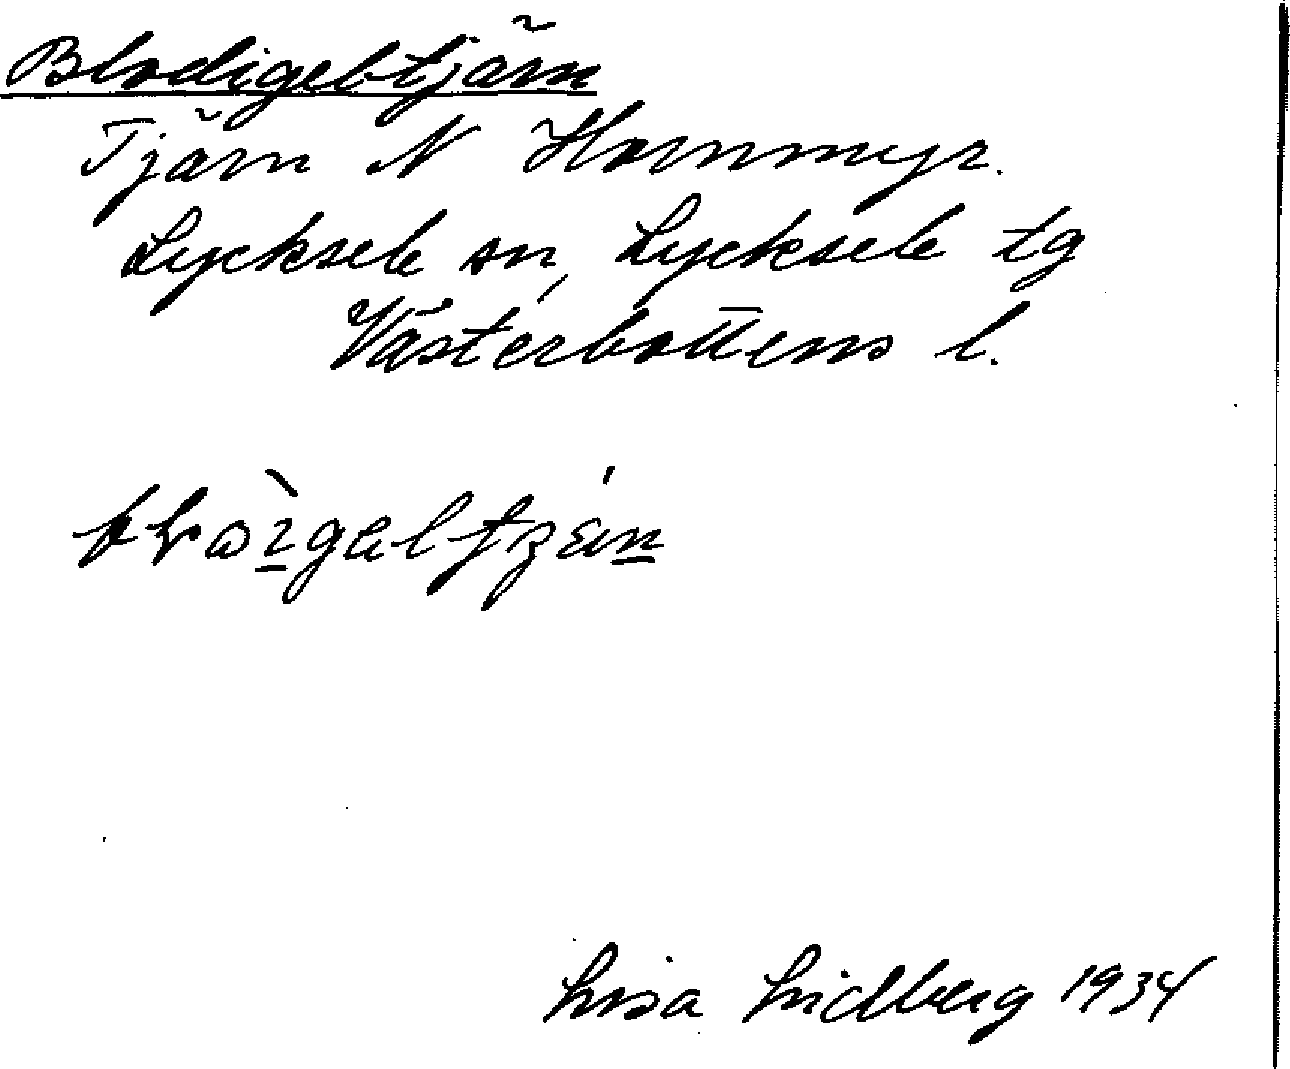 Blodigeltjärn
Tjärn N Hornmyr.
Lycksele sn, Lycksele tg
Västerbottens l.
Lisa Lidberg 1934